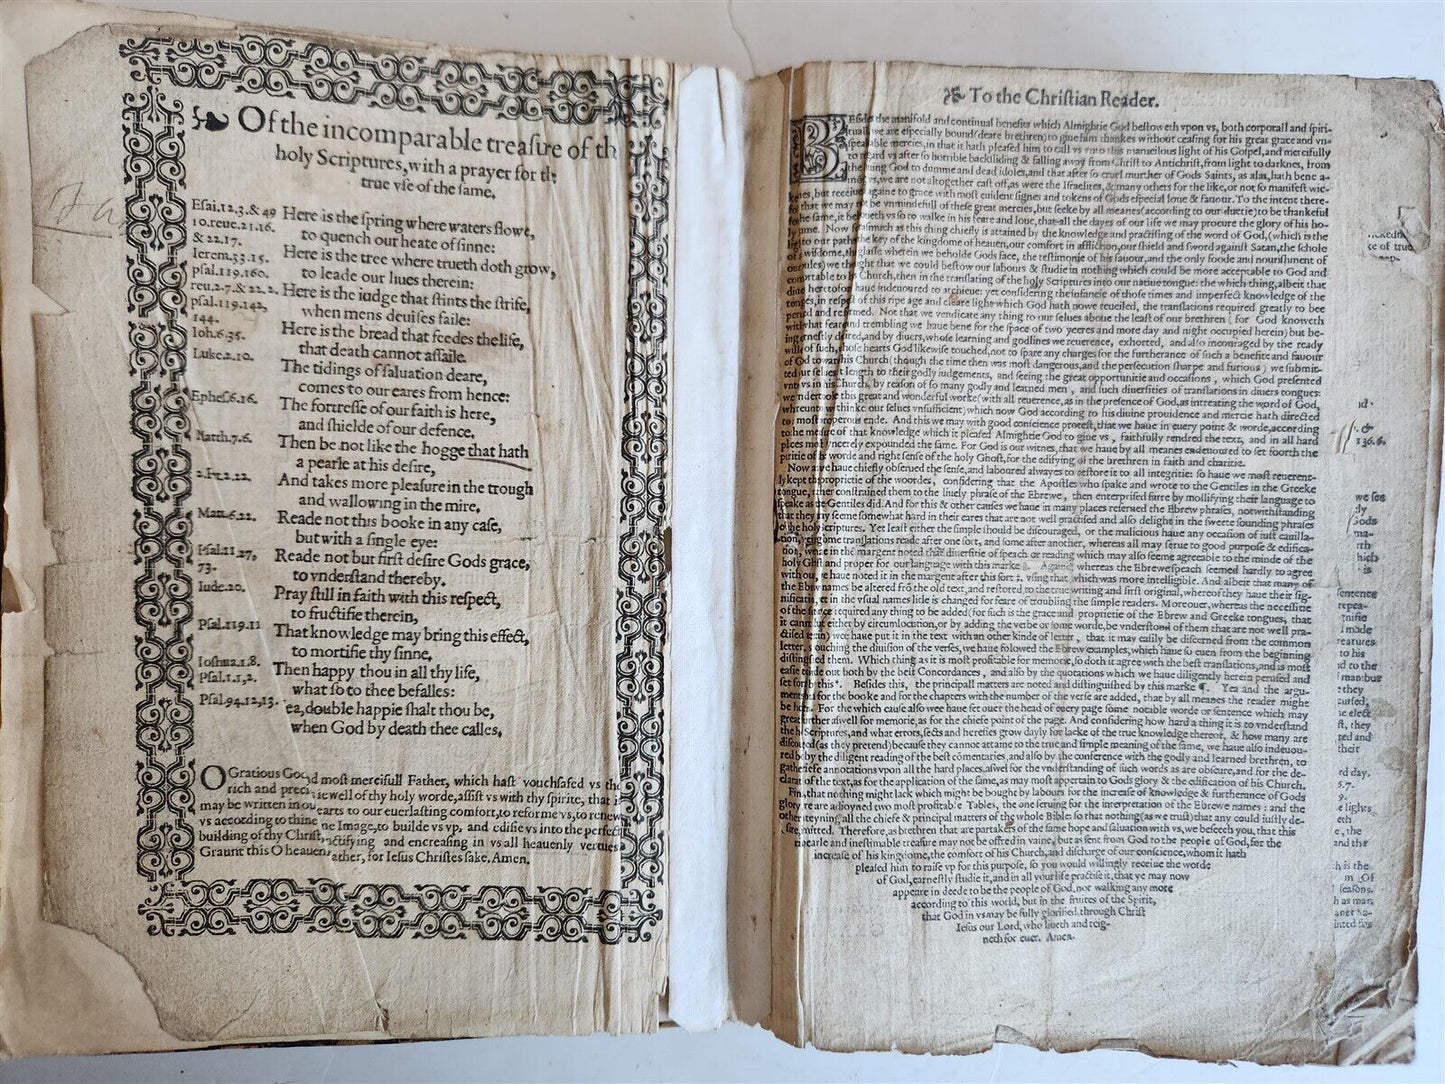 Of the incomparable treaſure of th
holy Scriptures, with a prayer for th
true vſe of the ſame.
Eſai.12.3.& 49
10.reue.21.16.
& 22.17.
Ierem.33.15.
pſal.119.160.
reu.2.7.& 22.2.
pſal.119.142,
144.
Ioh.6.35.
Luke.2.10.
Epheſ.6.16.
Match.7.6.
2.Pet.2.22.
Matt.6.22.
Pſal.11.27,
73.
Iude.20.
Pſal.119.11
Ioſhua.1.8.
Pſal.1.1,2.
Pſal.94.12,13.
Here is the ſpring where waters flowe,
to quench our heate of ſinne:
Here is the tree where trueth doth grow,
to leade our liues therein:
Here is the iudge that ſtints the ſtrife,
when mens deuiſes faile:
Here is the bread that feedes the life,
that death cannot aſſaile.
The tidings of ſaluation deare,
comes to our eares from hence:
The fortreſſe of our faith is here,
and ſhielde of our defence.
Then be not like the hogge that hath
a pearle at his deſire,
And takes more pleaſure in the trough
and wallowing in the mire.
Reade not this booke in any caſe,
but with a ſingle eye:
Reade not but firſt deſire Gods grace,
to vnderſtand thereby.
Pray ſtill in faith with this reſpect,
to fructifie therein,
That knowledge may bring this effect,
to mortifie thy ſinne.
Then happy thou in all thy life,
what ſo to thee befalles:
ea, double happie ſhalt thou be,
when God by death thee calles.
O Gratious God moſt mercifull Father, which haſt vouchſafed vs the
rich and preci iewell of thy holy worde, aſſiſt vs with thy ſpirite, that i
may be written in ou earts to our euerlaſting comfort, to reforme vs, to renew
vs according to thine ne Image, to builde vs vp, and edifie vs into the perfect
building of thy Chriſt, nctifying and encreaſing in vs all heauenly vertues
Graunt this O heauen ather, for Ieſus Chriſtes ſake, Amen.
To the Chriſtian Reader.
BEſides the manifold and continual benefits which Almightie God beſtoweth vpon vs, both corporall and ſpiri-
tuall, we are eſpecially bound (deare brethren) to giue him thankes without ceaſing for his great grace and vn-
ſpeakable mercies, in that it hath pleaſed him to call vs vnto this marueilous light of his Goſpel, and mercifully
to regard vs after ſo horrible backſliding & falling away from Chriſt to Antichriſt, from light to darknes, from
the liuing God to dumme and dead idoles, and that after ſo cruel murther of Gods Saints, as alas, hath bene a-
mong vs, we are not altogether caſt off, as were the Iſraelites, & many others for the like, or not ſo manifeſt wic-
kednes, but receiued againe to grace with moſt euident ſignes and tokens of Gods eſpecial loue & fauour. To the intent there-
fore that we may not be vnmindefull of theſe great mercies, but ſeeke by all meanes (according to our duetie) to be thankeful
for the ſame, it behoueth vs ſo to walke in his feare and loue, that all the dayes of our life we may procure the glory of his ho-
ly name. Now foraſmuch as this thing chiefly is attained by the knowledge and practiſing of the word of God, (which is the
light to our paths, the key of the kingdome of heauen, our comfort in affliction, our ſhield and ſword againſt Satan, the ſchole
of wiſdome, the glaſſe wherein we beholde Gods face, the teſtimonie of his fauour, and the only foode and nouriſhment of
our ſoules) we thought that we could beſtow our labours & ſtudie in nothing which could be more acceptable to God and
comfortable to his Church, then in the tranſlating of the holy Scriptures into our natiue tongue: the which thing, albeit that
diuers heretofore haue indeuoured to atchieue: yet conſidering the infancie of thoſe times and imperfect knowledge of the
tongues, in reſpect of this ripe age and cleare light which God hath nowe reueiled, the tranſlations required greatly to bee
peruſed and reformed. Not that we vendicate any thing to our ſelues aboue the leaſt of our brethren (for God knoweth
with what feare and trembling we haue bene for the ſpace of two yeeres and more day and night occupied herein) but be-
ing earneſtly deſired, and by diuers, whoſe learning and godlines we reuerence, exhorted, and alſo incouraged by the ready
willes of ſuch, whoſe hearts God likewiſe touched, not to ſpare any charges for the furtherance of ſuch a benefite and fauour
of God toward his Church (though the time then was moſt dangerous, and the perſecution ſharpe and furious) we ſubmit-
ted our ſelues at length to their godly iudgements, and ſeeing the great opportunitie and occaſions, which God preſented
vnto vs in his Church, by reaſon of ſo many godly and learned men, and ſuch diuerſities of tranſlations in diuers tongues:
we vndertooke this great and wonderful worke (with all reuerence, as in the preſence of God, as intreating the word of God,
whereunto we thinke our ſelues vnſufficient) which now God according to his diuine prouidence and mercie hath directed
to a moſt proſperous ende. And this we may with good conſcience proteſt, that we haue in euery point & worde, according
to the meaſure of that knowledge which it pleaſed Almightie God to giue vs, faithfully rendred the text, and in all hard
places moſt ſyncerely expounded the ſame. For God is our witnes, that we haue by all meanes endeuoured to ſet foorth the
puritie of the worde and right ſenſe of the holy Ghoſt, for the edifying of the brethren in faith and charitie.
Now as we haue chiefly obſerued the ſenſe, and laboured alwayes to reſtore it to all integritie: ſo haue we moſt reuerent-
ly kept the proprietie of the woordes, conſidering that the Apoſtles who ſpake and wrote to the Gentiles in the Greeke
tongue, rather conſtrained them to the liuely phraſe of the Ebrewe, then enterpriſed farre by mollifying their language to
ſpeake as the Gentiles did. And for this & other cauſes we haue in many places reſerued the Ebrew phraſes, notwithſtanding
that they may ſeeme ſomewhat hard in their eares that are not well practiſed and alſo delight in the ſweete ſounding phraſes
of the holy Scriptures. Yet leaſt either the ſimple ſhould be diſcouraged, or the malicious haue any occaſion of iuſt cauilla-
tion, ſeeing ſome tranſlations reade after one ſort, and ſome after another, whereas all may ſerue to good purpoſe & edifica-
tion, we haue in the margent noted that diuerſitie of ſpeach or reading which may alſo ſeeme agreeable to the minde of the
holy Ghoſt and proper for our language with this marke Againe whereas the Ebrewe ſpeach ſeemed hardly to agree
with ours, we haue noted it in the margent after this ſort vſing that which was more intelligible. And albeit that many of
the Ebrew names be altered frō the old text, and reſtored to the true writing and firſt original, whereof they haue their ſig-
nification, yet in the vſual names litle is changed for feare of troubling the ſimple readers. Moreouer, whereas the neceſſitie
of the ſentence required any thing to be added (for ſuch is the grace and proprietie of the Ebrew and Greeke tongues, that
it cannot but either by circumlocution, or by adding the verbe or ſome worde, be vnderſtood of them that are not well pra-
ctiſed therein) we haue put it in the text with an other kinde of letter, that it may eaſily be diſcerned from the common
letter. As touching the diuiſion of the verſes, we haue folowed the Ebrew examples, which haue ſo euen from the beginning
diſtinguiſhed them. Which thing as it is moſt profitable for memorie, ſo doth it agree with the beſt tranſlations, and is moſt
eaſie to finde out both by the beſt Concordances, and alſo by the quotations which we haue diligently herein peruſed and
ſet forth by this*. Beſides this, the principall matters are noted and diſtinguiſhed by this marke ¶. Yea and the argu-
ments both for the booke and for the chapters with the number of the verſe are added, that by all meanes the reader might
be holpen. For the which cauſe alſo wee haue ſet ouer the head of euery page ſome notable worde or ſentence which may
greatly further aſwell for memorie, as for the chiefe point of the page. And conſidering how hard a thing it is to vnderſtand
the holy Scriptures, and what errors, ſects and hereſies grow dayly for lacke of the true knowledge thereof, & how many are
diſcouraged (as they pretend) becauſe they cannot attaine to the true and ſimple meaning of the ſame, we haue alſo indeuou-
red both by the diligent reading of the beſt comentaries, and alſo by the conference with the godly and learned brethren, to
gather briefe annotations vpon all the hard places, aſwel for the vnderſtanding of ſuch words as are obſcure, and for the de-
claration of the text, as for the application of the ſame, as may moſt appertain to Gods glory & the edification of his Church.
Finally, that nothing might lack which might be bought by labours for the increaſe of knowledge & furtherance of Gods
glory, we are adioyned two moſt profitable Tables, the one ſeruing for the interpretation of the Ebrewe names: and the
other conteyning all the chiefe & principal matters of the whole Bible: ſo that nothing (as we truſt) that any could iuſtly de-
ſire, is omitted. Therefore, as brethren that are partakers of the ſame hope and ſaluation with vs, we beſeech you, that this
rich pearle and ineſtimable treaſure may not be offred in vaine, but as ſent from God to the people of God, for the
increaſe of his kingdome, the comfort of his Church, and diſcharge of our conſcience, whom it hath
pleaſed him to raiſe vp for this purpoſe, ſo you would willingly receiue the worde
of God, earneſtly ſtudie it, and in all your life practiſe it, that ye may now
appeare in deede to be the people of God, not walking any more
according to this world, but in the fruites of the Spirit,
that God in vs may be fully glorified through Chriſt
Ieſus our Lord, who liueth and reig-
neth for euer. Amen.